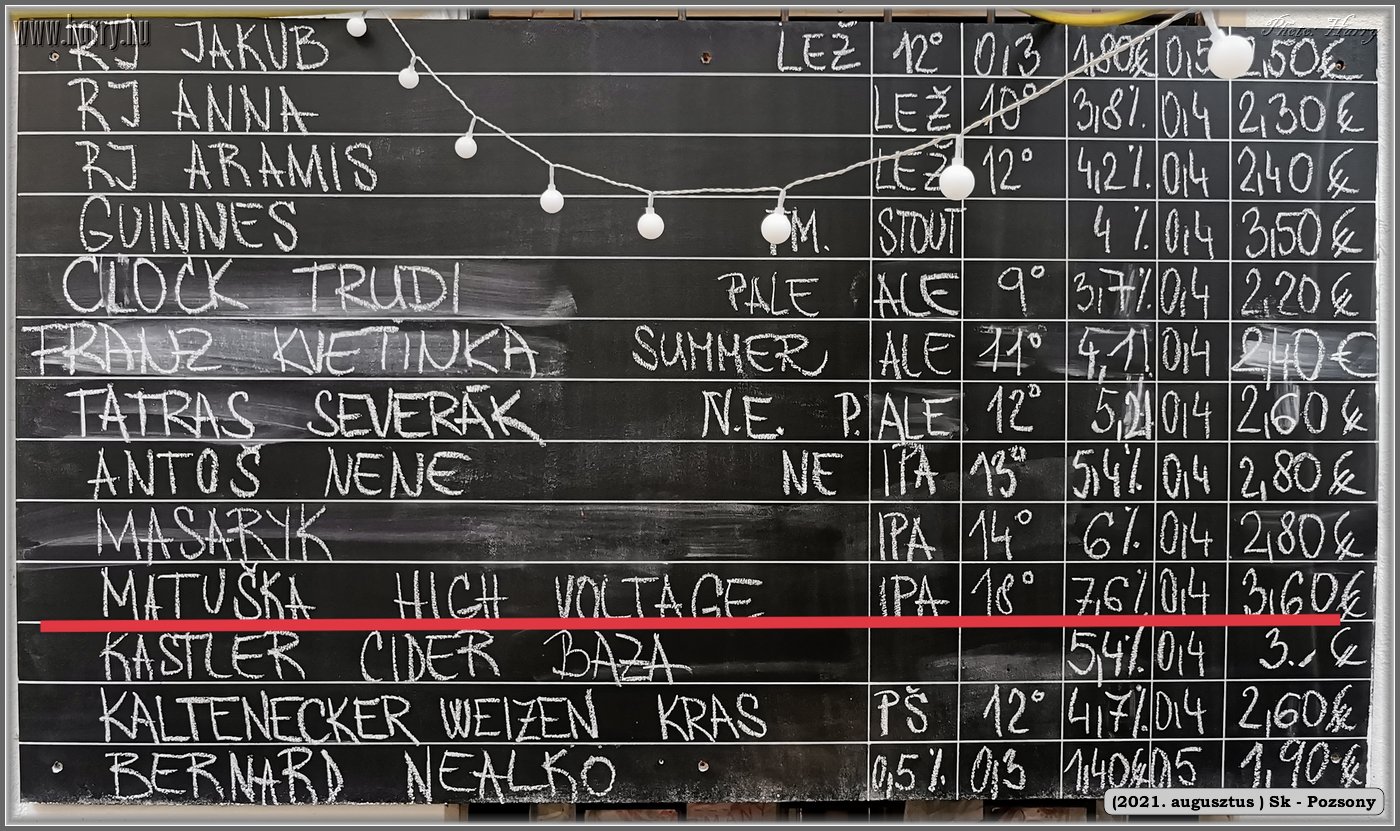 www.horry.hu
Photo: Harry
RJ JAKUB LEŽ 12° 0,3 1,80€ 0,5 2,50€
RJ ANNA LEŽ 10° 3,8% 0,4 2,30€
RJ ARAMIS LEŽ 12° 4,2% 0,4 2,40€
GUINNES TM. STOUT 4% 0,4 3,50€
CLOCK TRUDI PALE ALE 9° 3,7% 0,4 2,20€
FRANZ KVETINKA SUMMER ALE 11° 4,1 0,4 2,40€
TATRAS SEVERÁK N.E. P. ALE 12° 5,2 0,4 2,60€
ANTOŠ NENE NE IPA 13° 5,4% 0,4 2,80€
MASARYK IPA 14° 6% 0,4 2,80€
MATUŠKA HIGH VOLTAGE IPA 18° 7,6% 0,4 3,60€
KASTLER CIDER BAZA 5,4% 0,4 3.- €
KALTENECKER WEIZEN KRAS PŠ 12° 4,7% 0,4 2,60€
BERNARD NEALKO 0,5% 0,3 1,40€ 0,5 1,90€
(2021. augusztus ) Sk - Pozsony